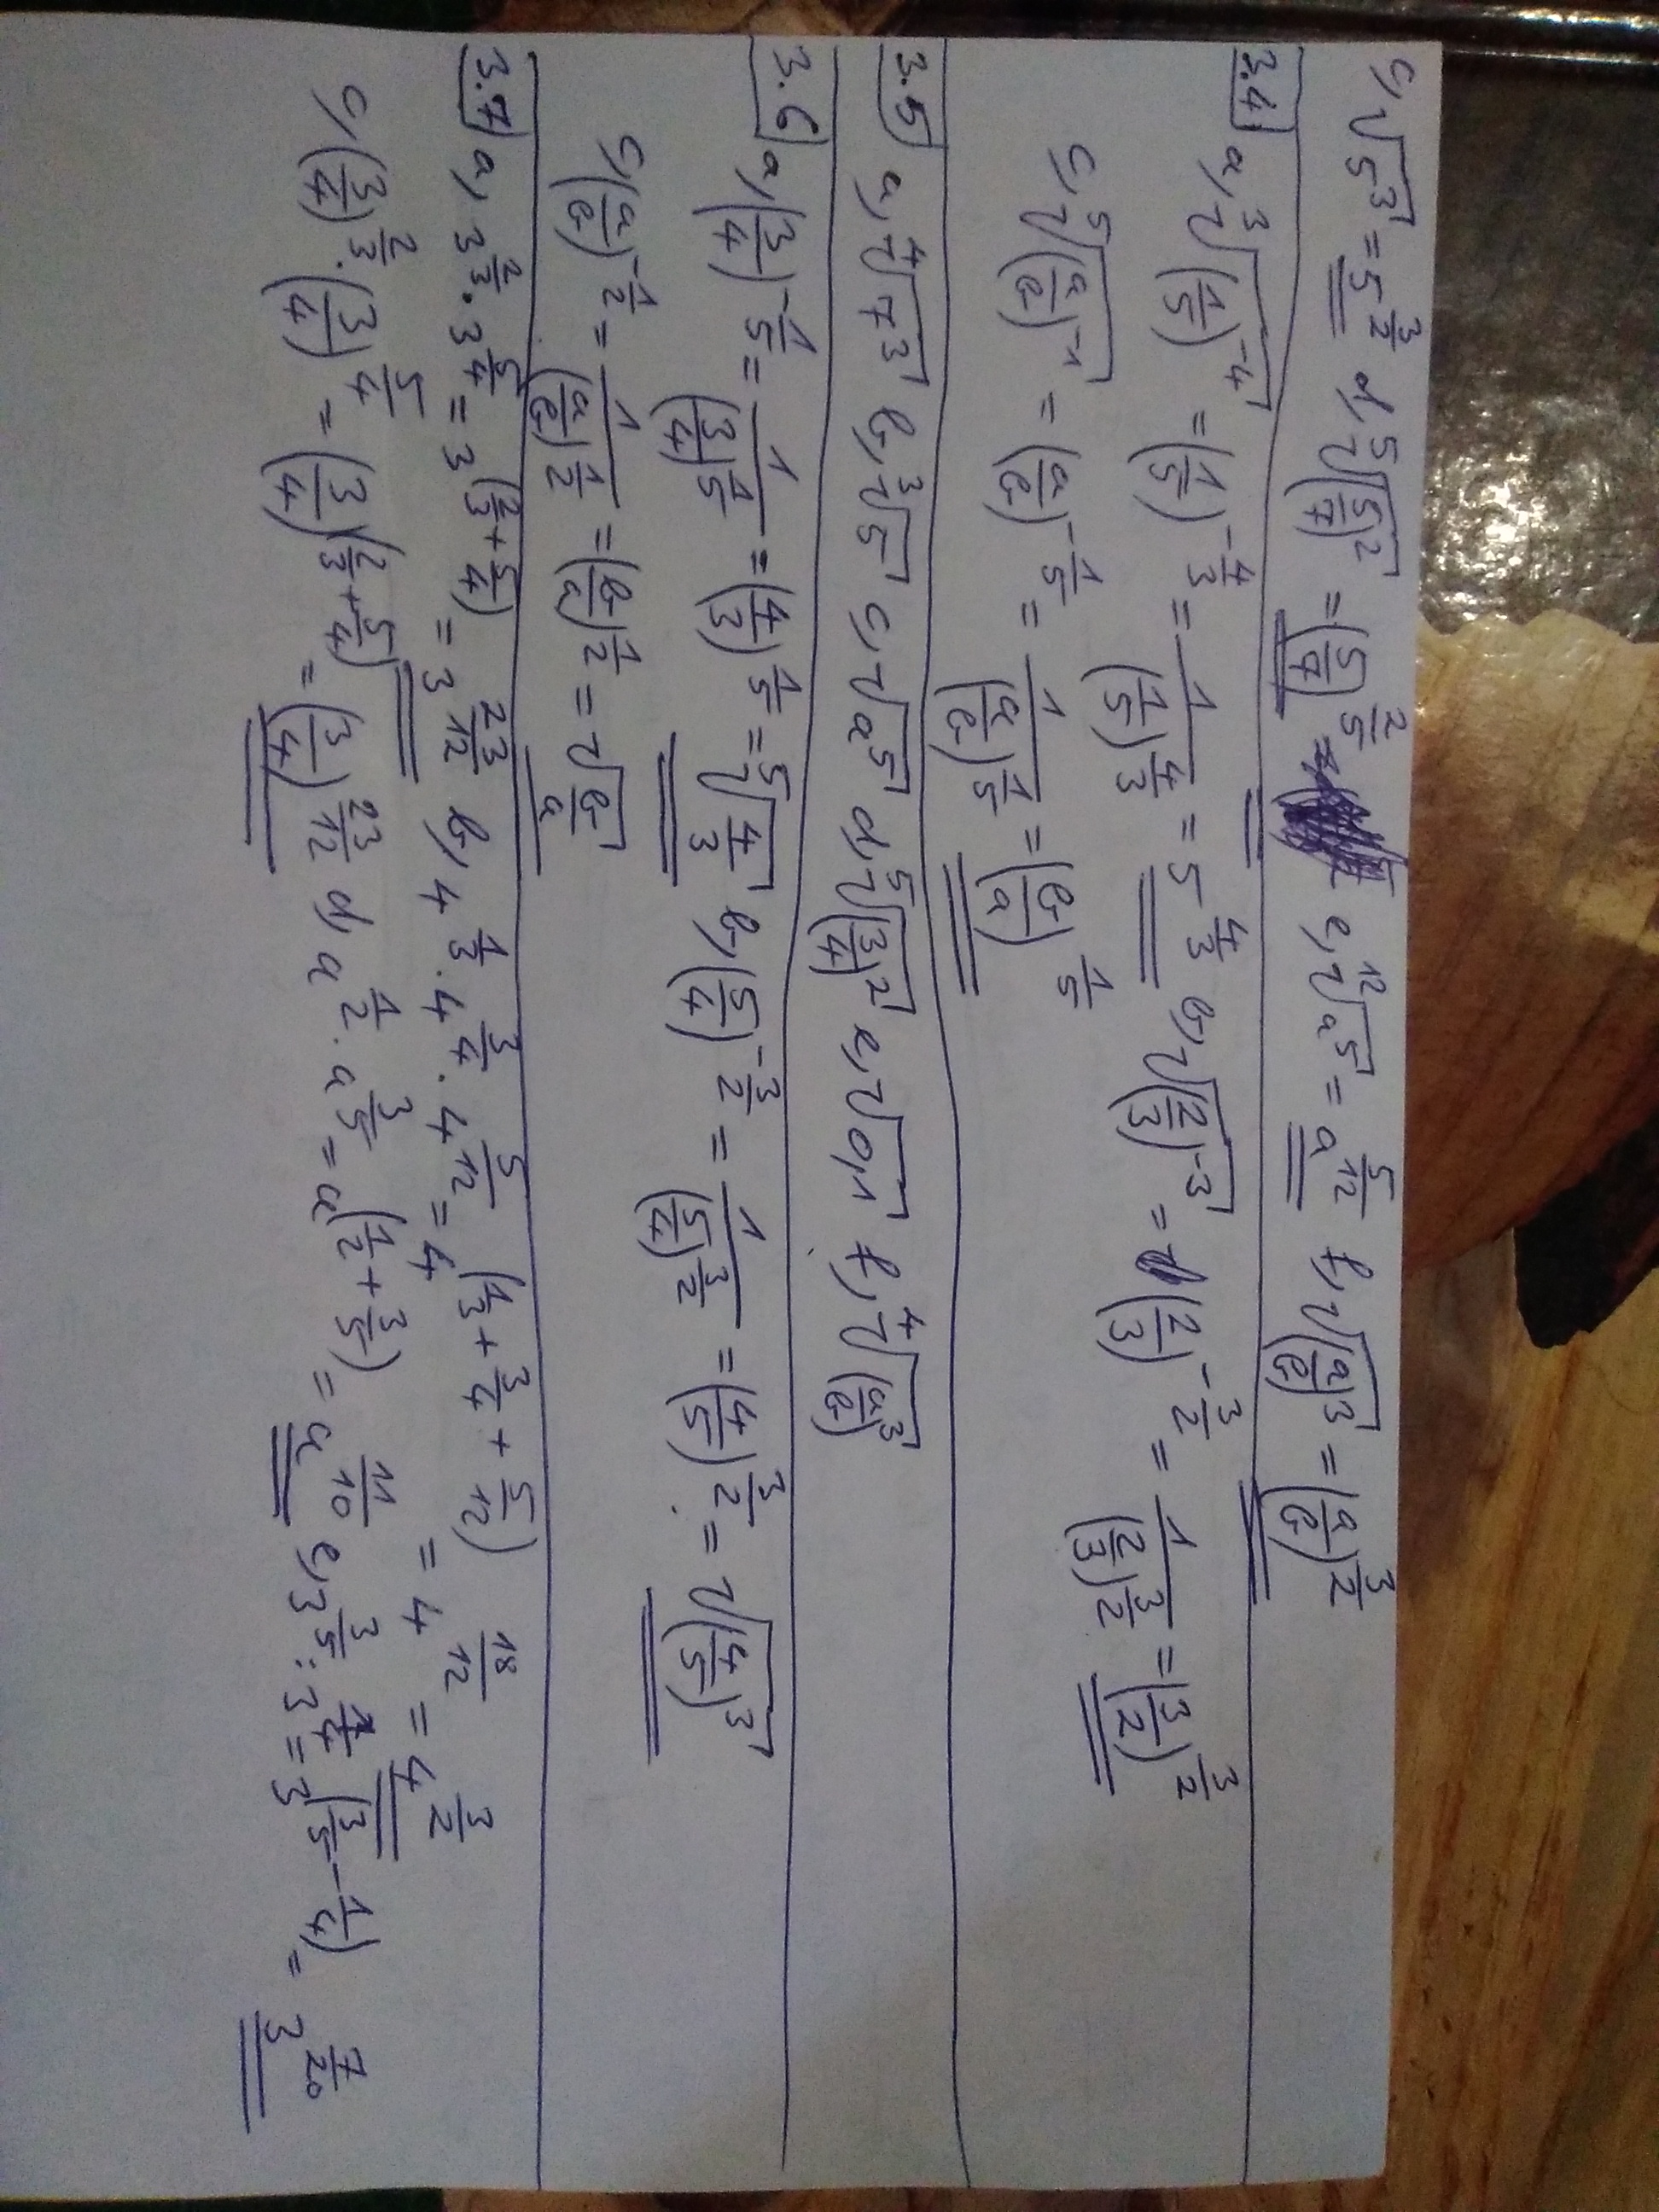 c, √5³ = 5^(3/2) d, ⁵√(5/7)² = (5/7)^(2/5) e, ¹²√a⁵ = a^(5/12) f, √(a/b)³ = (a/b)^(3/2)
3.4 a, ³√(1/5)⁻⁴ = (1/5)^(-4/3) = 1/(1/5)^(4/3) = 5^(4/3) b, √(2/3)⁻³ = (2/3)^(-3/2) = 1/(2/3)^(3/2) = (3/2)^(3/2)
c, ⁵√(a/b)⁻¹ = (a/b)^(-1/5) = 1/(a/b)^(1/5) = (b/a)^(1/5)
3.5 a, ⁴√7³ b, ³√5 c, √a⁵ d, ⁵√(3/4)² e, √0,1 f, ⁴√(a/b)³
3.6 a, (3/4)^(-1/5) = 1/(3/4)^(1/5) = (4/3)^(1/5) = ⁵√4/3 b, (5/4)^(-3/2) = 1/(5/4)^(3/2) = (4/5)^(3/2) = √(4/5)³
c, (a/b)^(-1/2) = 1/(a/b)^(1/2) = (b/a)^(1/2) = √b/a
3.7 a, 3^(2/3) · 3^(5/4) = 3^(2/3 + 5/4) = 3^(23/12) b, 4^(1/3) · 4^(3/4) · 4^(5/12) = 4^(1/3 + 3/4 + 5/12) = 4^(18/12) = 4^(3/2)
c, (3/4)^(2/3) · (3/4)^(5/4) = (3/4)^(2/3 + 5/4) = (3/4)^(23/12) d, a^(1/2) · a^(3/5) = a^(1/2 + 3/5) = a^(11/10) e, 3^(3/5) : 3^(1/4) = 3^(3/5 - 1/4) = 3^(7/20)